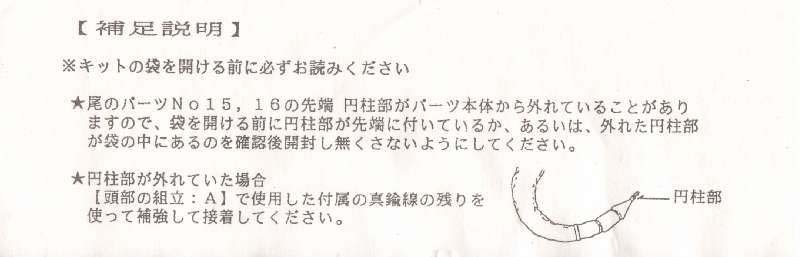 【補足説明】
※キットの袋を開ける前に必ずお読みください
★尾のパーツNo15,16の先端 円柱部がパーツ本体から外れていることがあり
ますので、袋を開ける前に円柱部が先端に付いているか、あるいは、外れた円柱部
が袋の中にあるのを確認後開封し無くさないようにしてください。
★円柱部が外れていた場合
【頭部の組立:A】で使用した付属の真鍮線の残りを
使って補強して接着してください。
円柱部